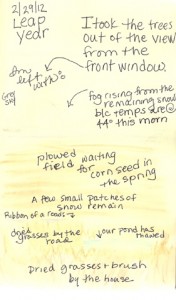 2/29/12
Leap
year
I took the trees
out of the view
from the
front window.
left with
Grey
sky
fog rising from the
remaining snow
b/c temps are @
44° this morn
plowed
field waiting
for corn seed in
the spring
A few small patches of
snow remain
Ribbon of a road→
dried
grasses by the
road
our pond has
thawed
Dried grasses + brush
by the house